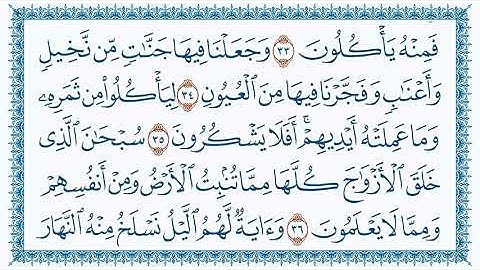 فَمِنْهُ يَأْكُلُونَ ٣٣ وَجَعَلْنَا فِيهَا جَنَّاتٍ مِّن نَّخِيلٍ
وَأَعْنَابٍ وَفَجَّرْنَا فِيهَا مِنَ الْعُيُونِ ٣٤ لِيَأْكُلُوا مِن ثَمَرِهِ
وَمَا عَمِلَتْهُ أَيْدِيهِمْ ۖ أَفَلَا يَشْكُرُونَ ٣٥ سُبْحَانَ الَّذِي
خَلَقَ الْأَزْوَاجَ كُلَّهَا مِمَّا تُنبِتُ الْأَرْضُ وَمِنْ أَنفُسِهِمْ
وَمِمَّا لَا يَعْلَمُونَ ٣٦ وَءَايَةٌ لَّهُمُ اللَّيْلُ نَسْلَخُ مِنْهُ النَّهَارَ